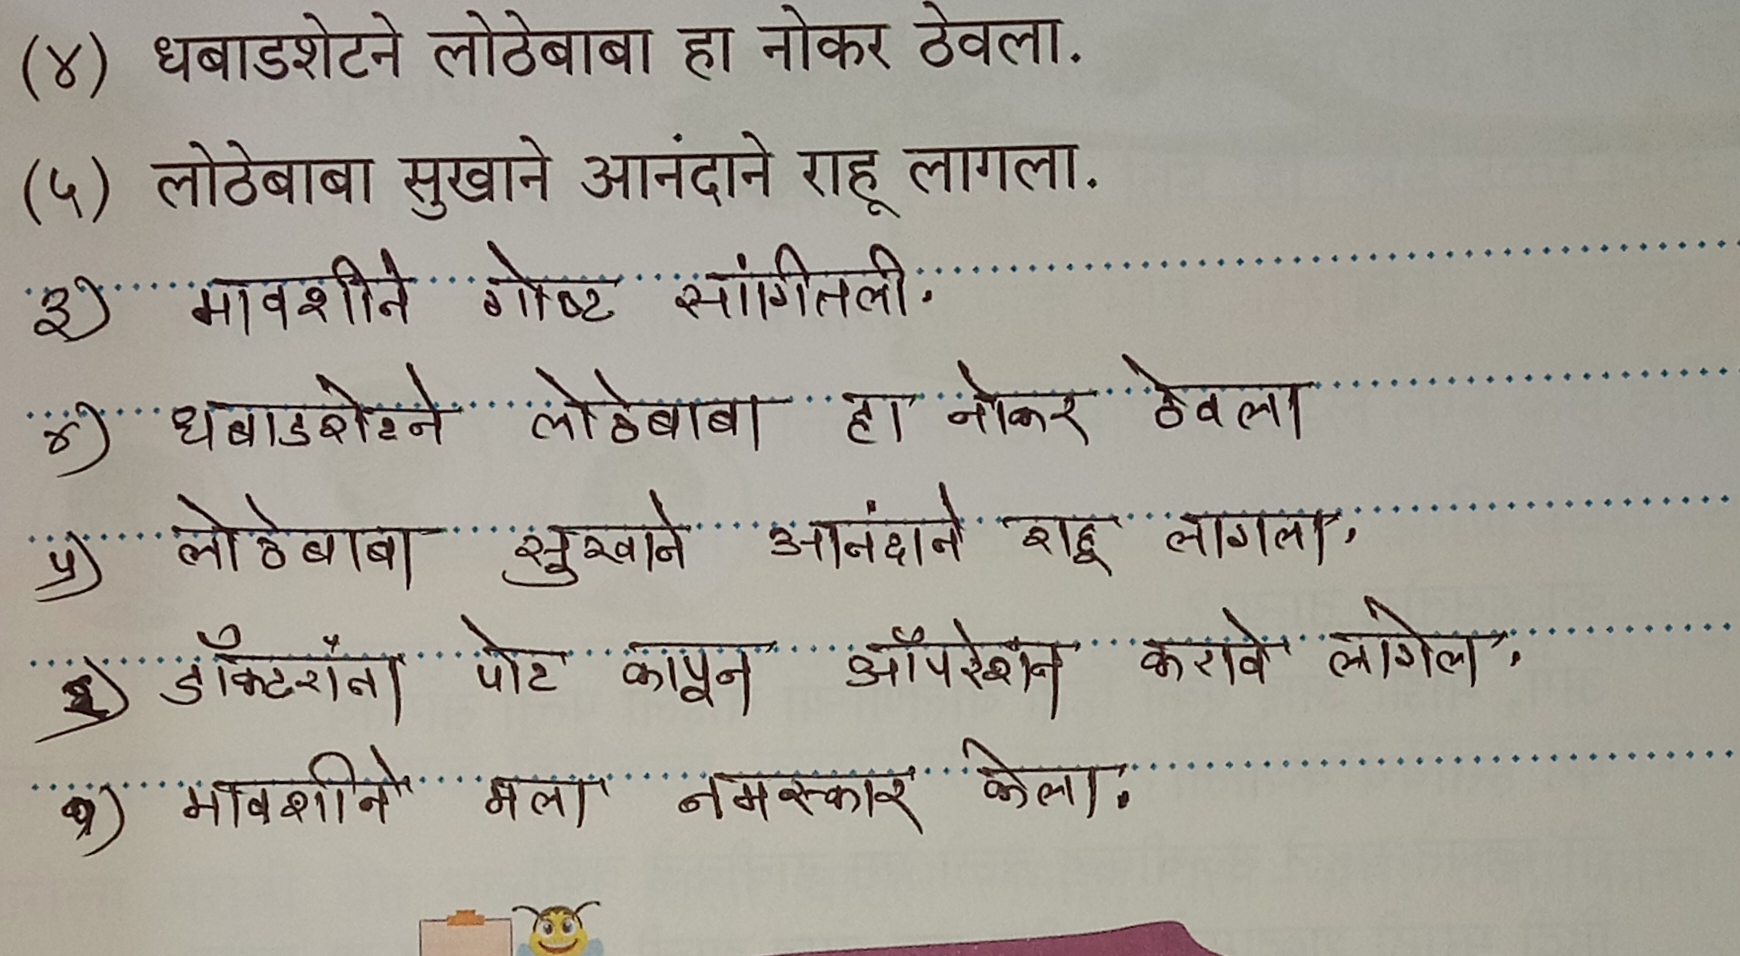 (४) धबाडशेटने लोठेबाबा हा नोकर ठेवला.
(५) लोठेबाबा सुखाने आनंदाने राहू लागला.
३) मावशीने गोष्ट सांगीतली.
४) धबाडशेटने लोठेबाबा हा नोकर ठेवला
५) लोठेबाबा सुखाने आनंदाने राहू लागला.
२) डॉक्टरांना पोट कापून ऑपरेशन करावे लागेल.
१) मावशीने मला नमस्कार केला.